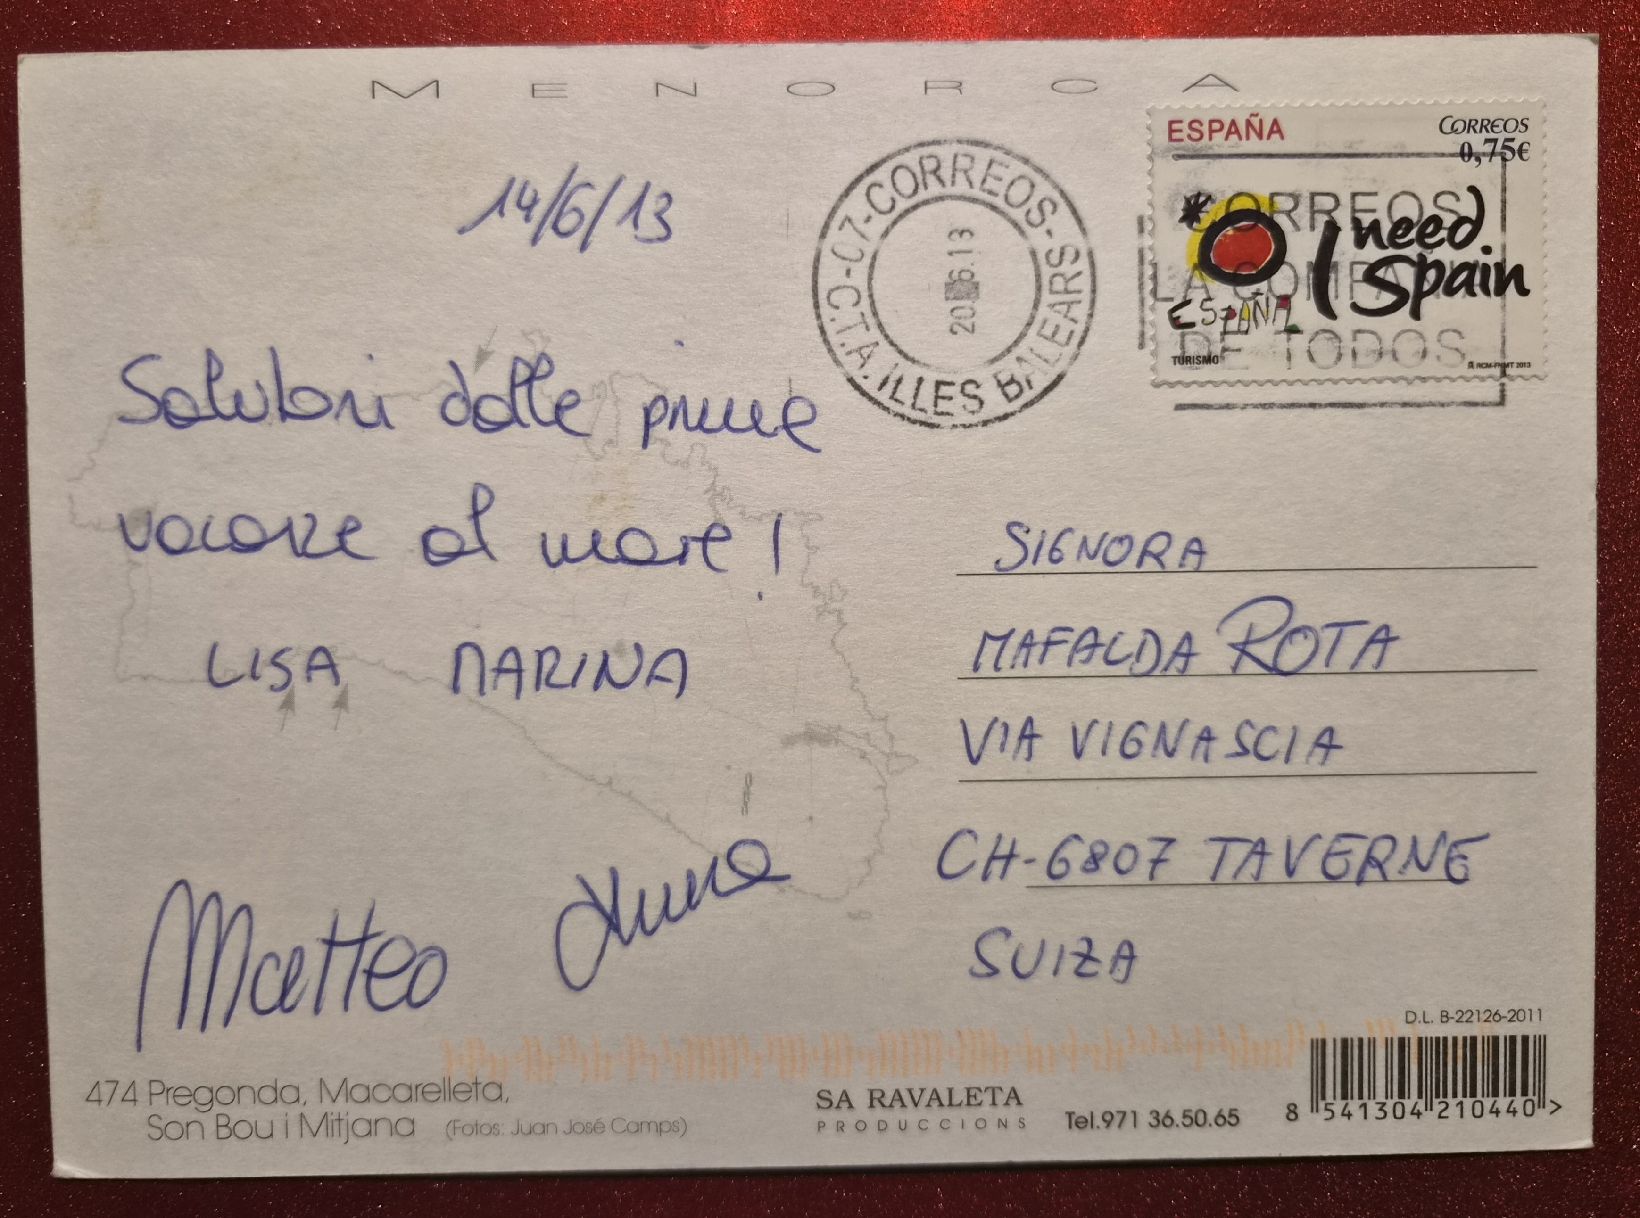 MENORCA
ESPAÑA
CORREOS
0,75€
I need
Spain
ESPAÑA
TURISMO
RCM-FNMT 2013
CORREOS
LA COMPAÑIA
DE TODOS
07-CORREOS-
C.T.A. ILLES BALEARS
6.13
14/6/13
Saluboni dalle prime
vacanze al mare!
LISA MARINA
Matteo
SIGNORA
MAFALDA ROTA
VIA VIGNASCIA
CH-6807 TAVERNE
SUIZA
D.L. B-22126-2011
474 Pregonda, Macarelleta,
Son Bou i Mitjana (Fotos: Juan José Camps)
SA RAVALETA
PRODUCCIONS
Tel.971 36.50.65
8 541304 210440 >